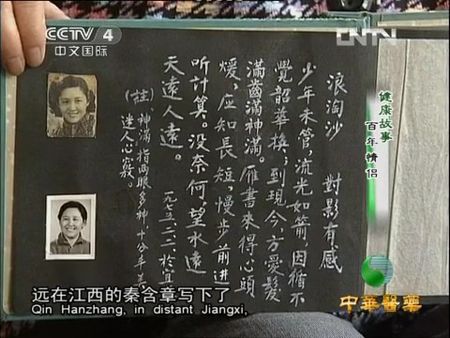 CCTV 4
中文国际
CNTV
健康故事
百年情侣
浪淘沙 對影有感
少年未管,流光如箭,因循不
覺韶華換;到現今,方愛髮
滿齒滿神滿。雁書來得心頭
煖,应知長短,慢步前進
听計算。没奈何,望水遠
天遠人遠。
於宜
(註)神滿指两眼多神,十分
迷人心竅。
中華醫藥
远在江西的秦含章写下了
Qin Hanzhang, in distant Jiangxi,